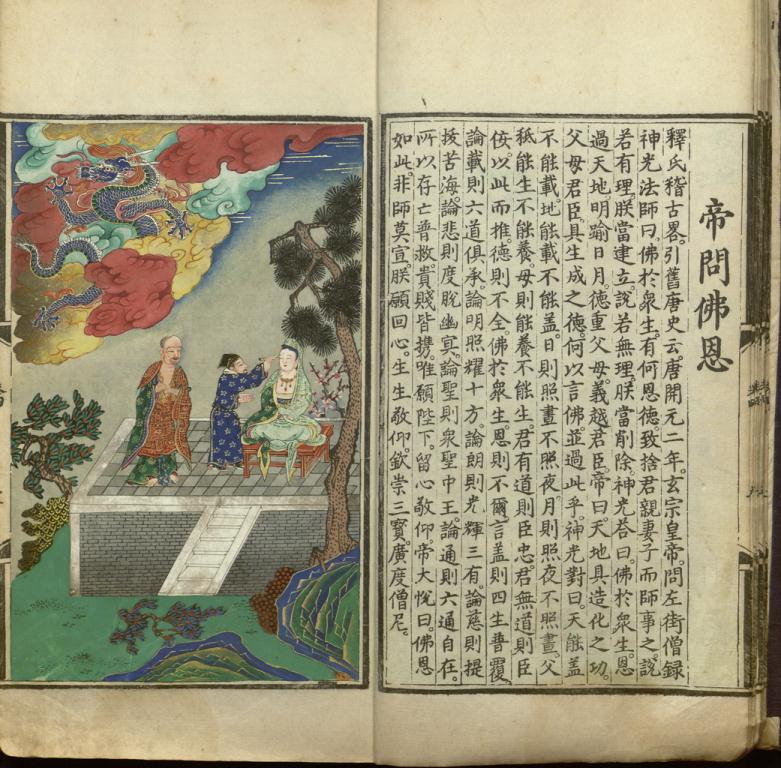 帝問佛恩
釋氏稽古畧。引舊唐史云。唐開元二年。玄宗皇帝。問左街僧錄
神光法師曰。佛於衆生。有何恩德。致捨君親妻子。而師事之。說
若有理。朕當建立。說若無理。朕當削除。神光荅曰。佛於衆生。恩
過天地。明踰日月。德重父母。義越君臣。帝曰。天地具造化之功。
父母君臣。具生成之德。何以言佛。並過此乎。神光對曰。天能盖
不能載。地能載不能盖。日則照晝不照夜。月則照夜不照晝。父
秖能生不能養。母則能養不能生。君有道則臣忠。君無道則臣
佞。以此而推。德則不全。佛於衆生。恩則不爾。言盖則四生普覆。
論載則六道俱承。論明照耀十方。論朗則光輝三有。論慈則提
拔苦海。論悲則度脫幽冥。論聖則衆聖中王。論通則六通自在。
所以存亡普救。貴賤皆携。唯願陛下。留心敬仰。帝大悅曰。佛恩
如此。非師莫宣。朕願回心。生生敬仰。欽崇三寳。廣度僧尼。